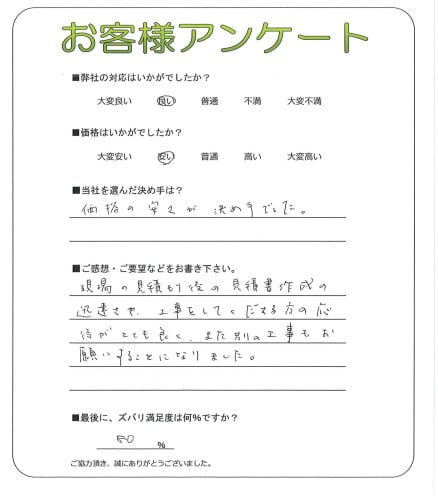 お客様アンケート
■弊社の対応はいかがでしたか？
大変良い　良い　普通　不満　大変不満
■価格はいかがでしたか？
大変安い　安い　普通　高い　大変高い
■当社を選んだ決め手は？
価格の安さが決め手でした。
■ご感想・ご要望などをお書き下さい。
現場の見積もり後の見積書作成の
迅速さや、工事をしてくださる方の応
待がとても良く、また別の工事もお
願いすることになりました。
■最後に、ズバリ満足度は何%ですか？
80 %
ご協力頂き、誠にありがとうございました。